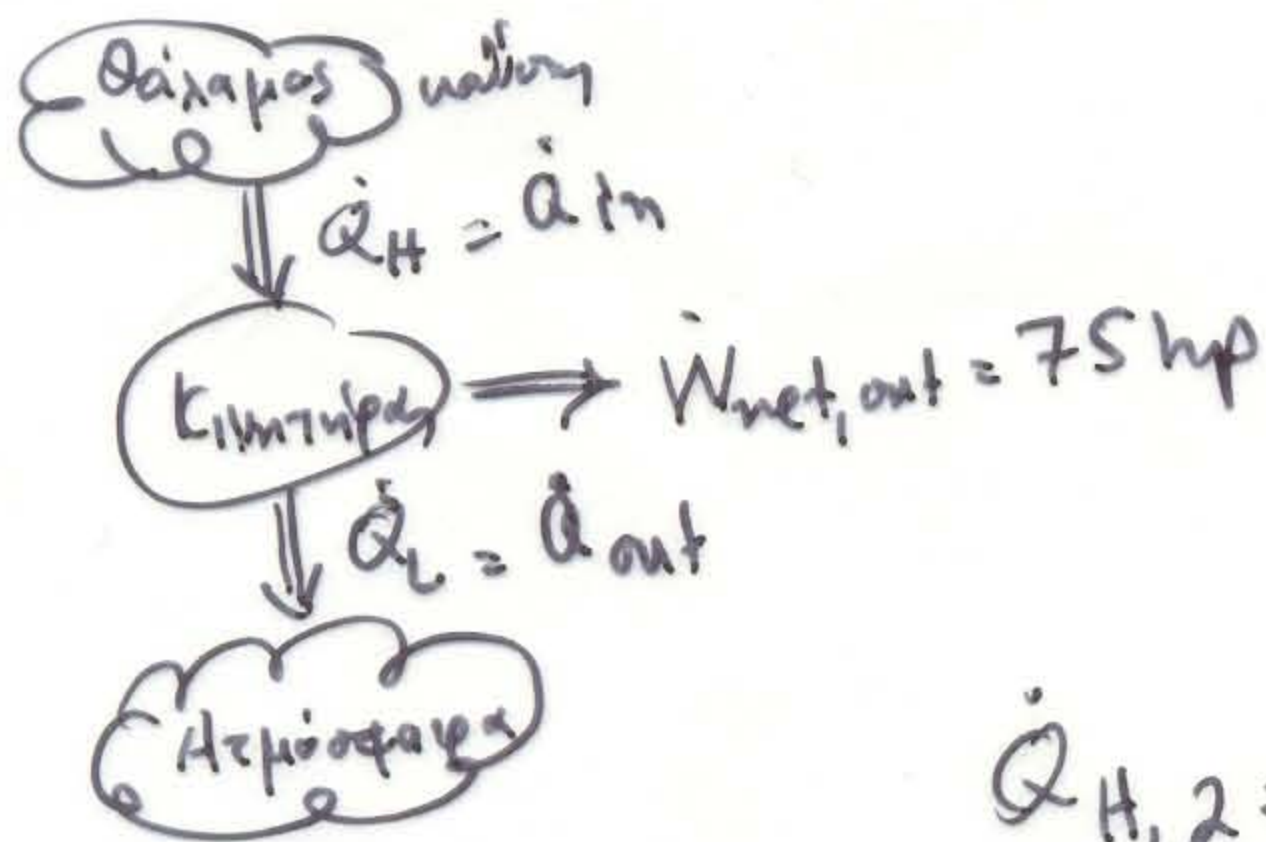 Θάλαμος καύσης
Q̇H = Q̇in
Κινητήρας
Ẇnet, out = 75 hp
Q̇L = Q̇out
Ατμόσφαιρα
Q̇H, 2 =